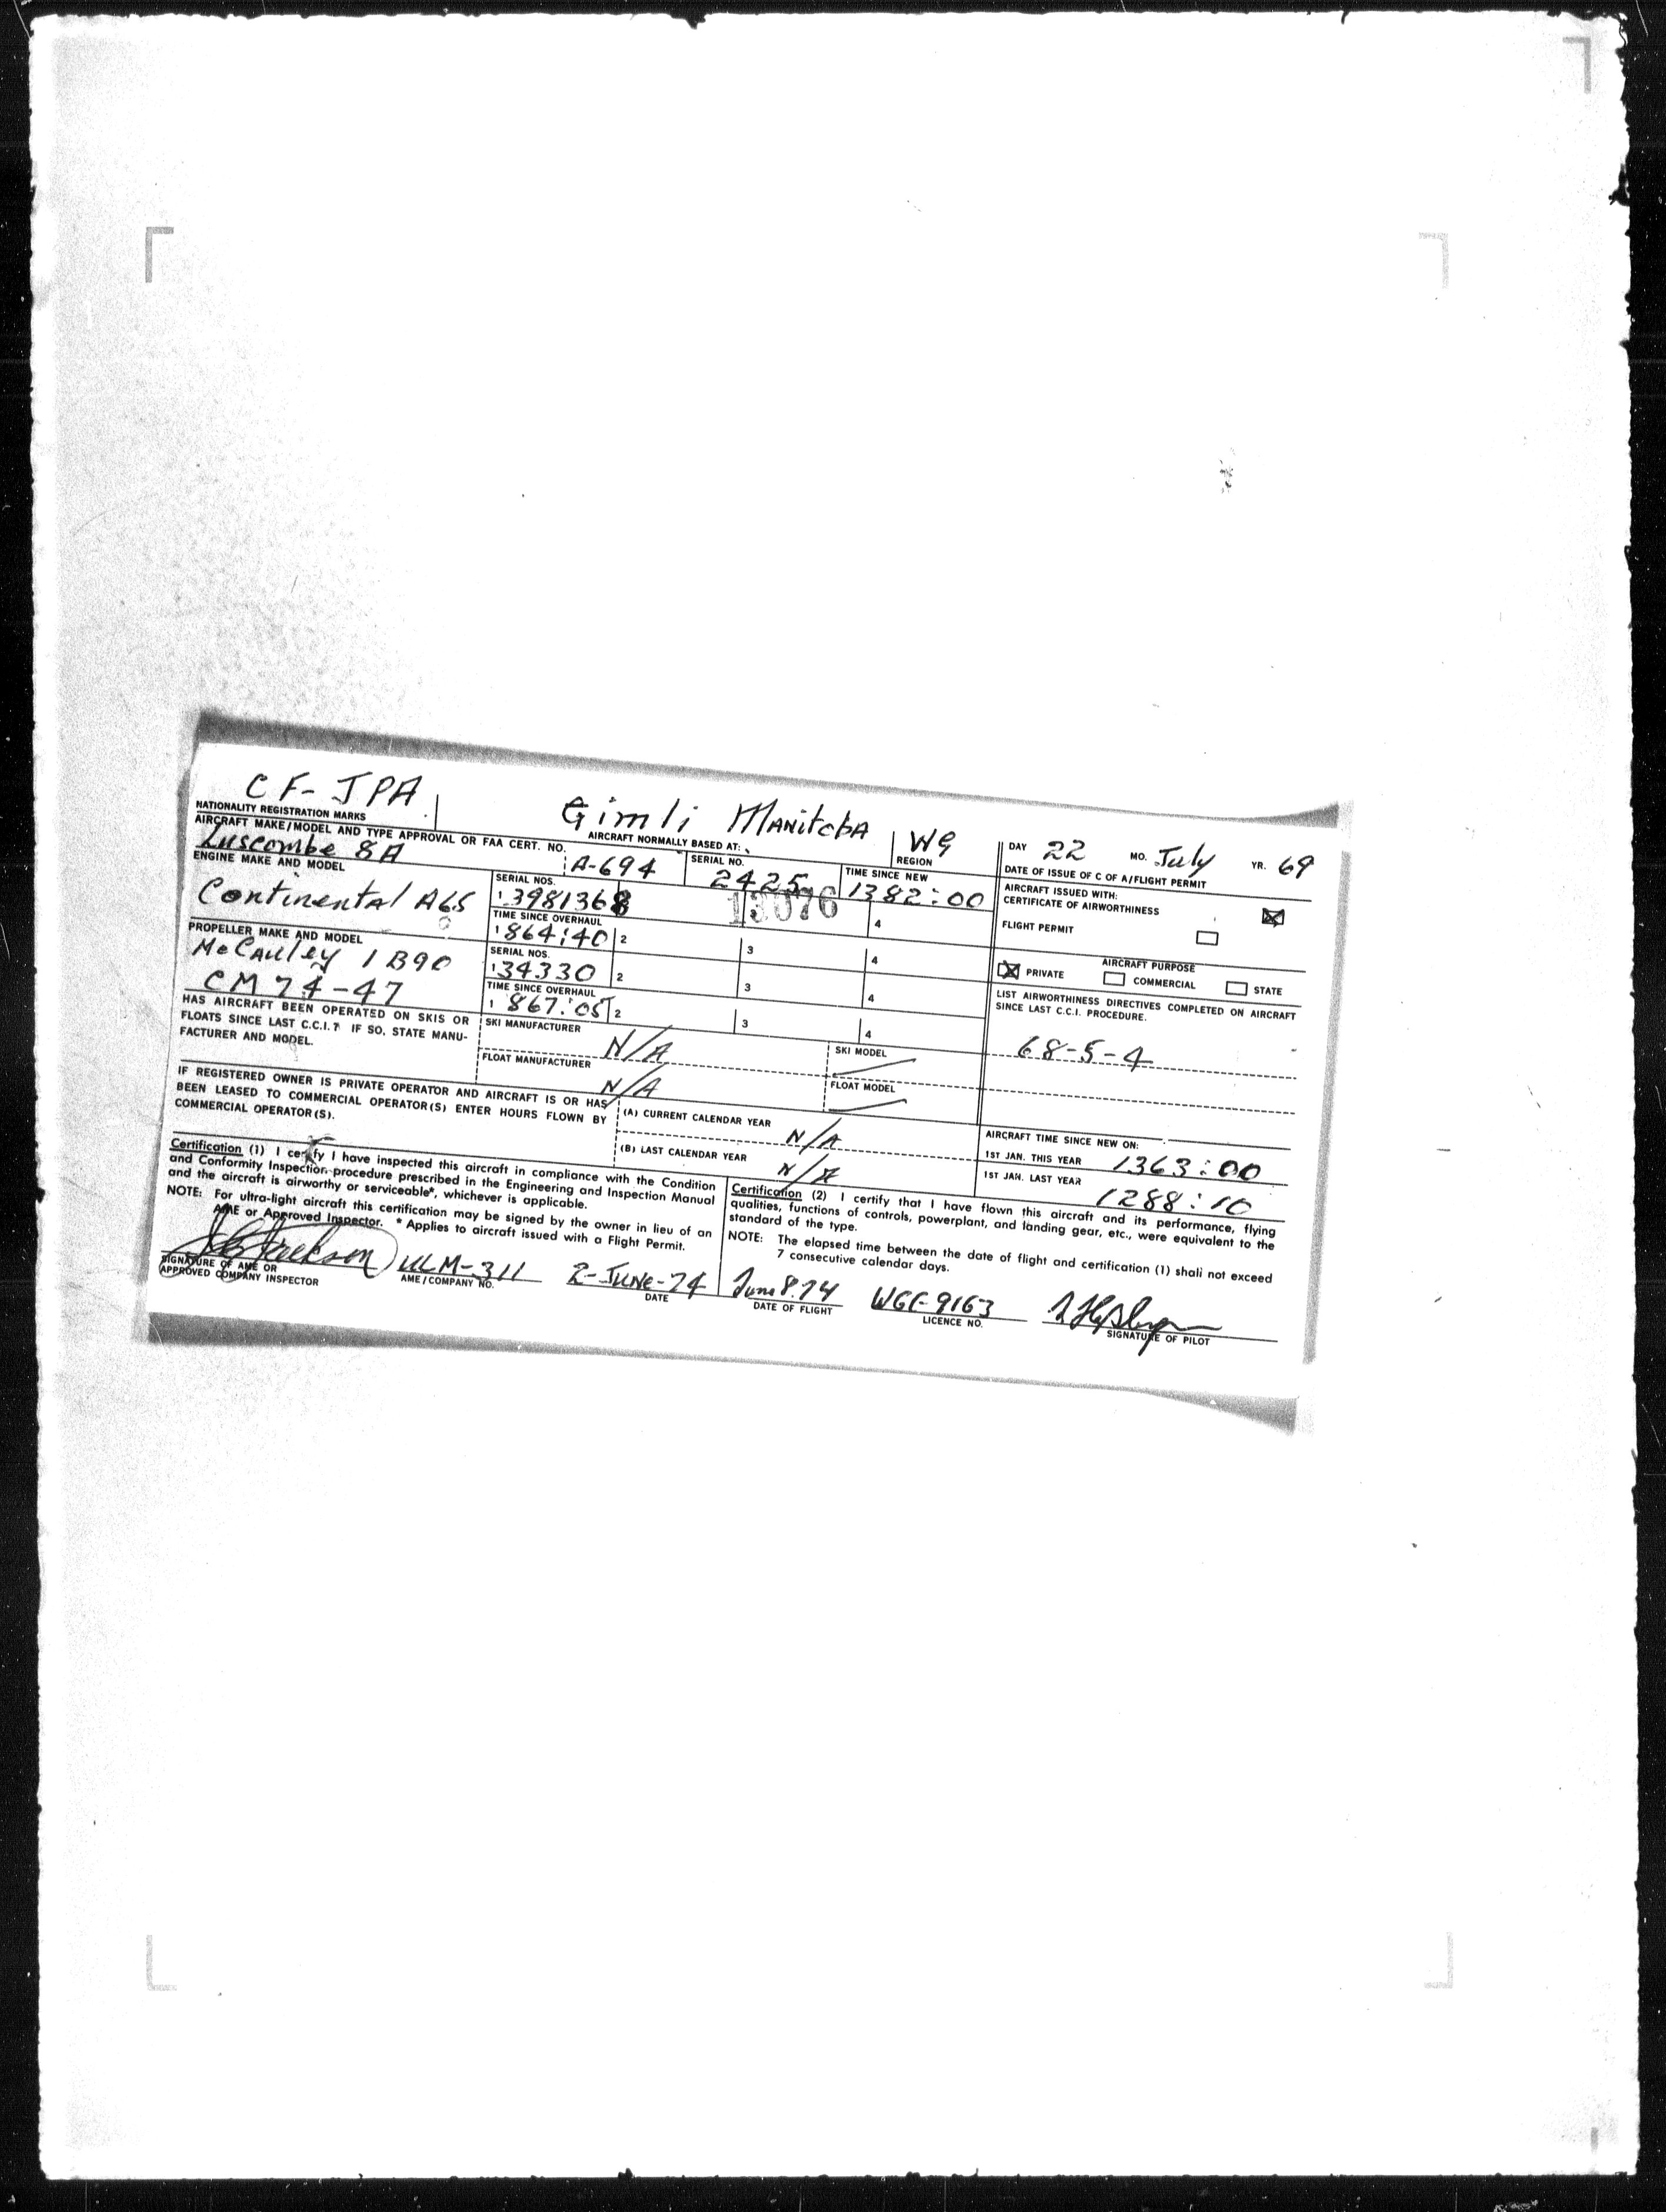 CF-JPA
Gimli Manitoba
W9
DAY 22 MO. July YR. 69
NATIONALITY REGISTRATION MARKS
AIRCRAFT NORMALLY BASED AT:
REGION
DATE OF ISSUE OF C OF A/FLIGHT PERMIT
AIRCRAFT MAKE/MODEL AND TYPE APPROVAL OR FAA CERT. NO.
Luscombe 8A
A-694
SERIAL NO.
2425
TIME SINCE NEW
1382:00
AIRCRAFT ISSUED WITH:
CERTIFICATE OF AIRWORTHINESS
FLIGHT PERMIT
ENGINE MAKE AND MODEL
Continental A65
SERIAL NOS.
1 3981368
13076
4
TIME SINCE OVERHAUL
1 864:40 2 3 4
PROPELLER MAKE AND MODEL
McCauley 1B90
CM74-47
SERIAL NOS.
1 34330 2 3 4
TIME SINCE OVERHAUL
1 867:05 2 3 4
AIRCRAFT PURPOSE
PRIVATE COMMERCIAL STATE
LIST AIRWORTHINESS DIRECTIVES COMPLETED ON AIRCRAFT
SINCE LAST C.C.I. PROCEDURE.
68-5-4
HAS AIRCRAFT BEEN OPERATED ON SKIS OR
FLOATS SINCE LAST C.C.I.? IF SO, STATE MANU-
FACTURER AND MODEL.
SKI MANUFACTURER N/A
SKI MODEL
FLOAT MANUFACTURER N/A
FLOAT MODEL
IF REGISTERED OWNER IS PRIVATE OPERATOR AND AIRCRAFT IS OR HAS
BEEN LEASED TO COMMERCIAL OPERATOR(S) ENTER HOURS FLOWN BY
COMMERCIAL OPERATOR(S).
(A) CURRENT CALENDAR YEAR N/A
(B) LAST CALENDAR YEAR N/A
AIRCRAFT TIME SINCE NEW ON:
1ST JAN. THIS YEAR 1363:00
1ST JAN. LAST YEAR 1288:10
Certification (1) I certify I have inspected this aircraft in compliance with the Condition
and Conformity Inspection procedure prescribed in the Engineering and Inspection Manual
and the aircraft is airworthy or serviceable*, whichever is applicable.
NOTE: For ultra-light aircraft this certification may be signed by the owner in lieu of an
AME or Approved Inspector. * Applies to aircraft issued with a Flight Permit.
Jackson
ULM-311
2-June-74
SIGNATURE OF AME OR
APPROVED COMPANY INSPECTOR
AME/COMPANY NO.
DATE
Certification (2) I certify that I have flown this aircraft and its performance, flying
qualities, functions of controls, powerplant, and landing gear, etc., were equivalent to the
standard of the type.
NOTE: The elapsed time between the date of flight and certification (1) shall not exceed
7 consecutive calendar days.
June 8.74
DATE OF FLIGHT
LICENCE NO.
SIGNATURE OF PILOT